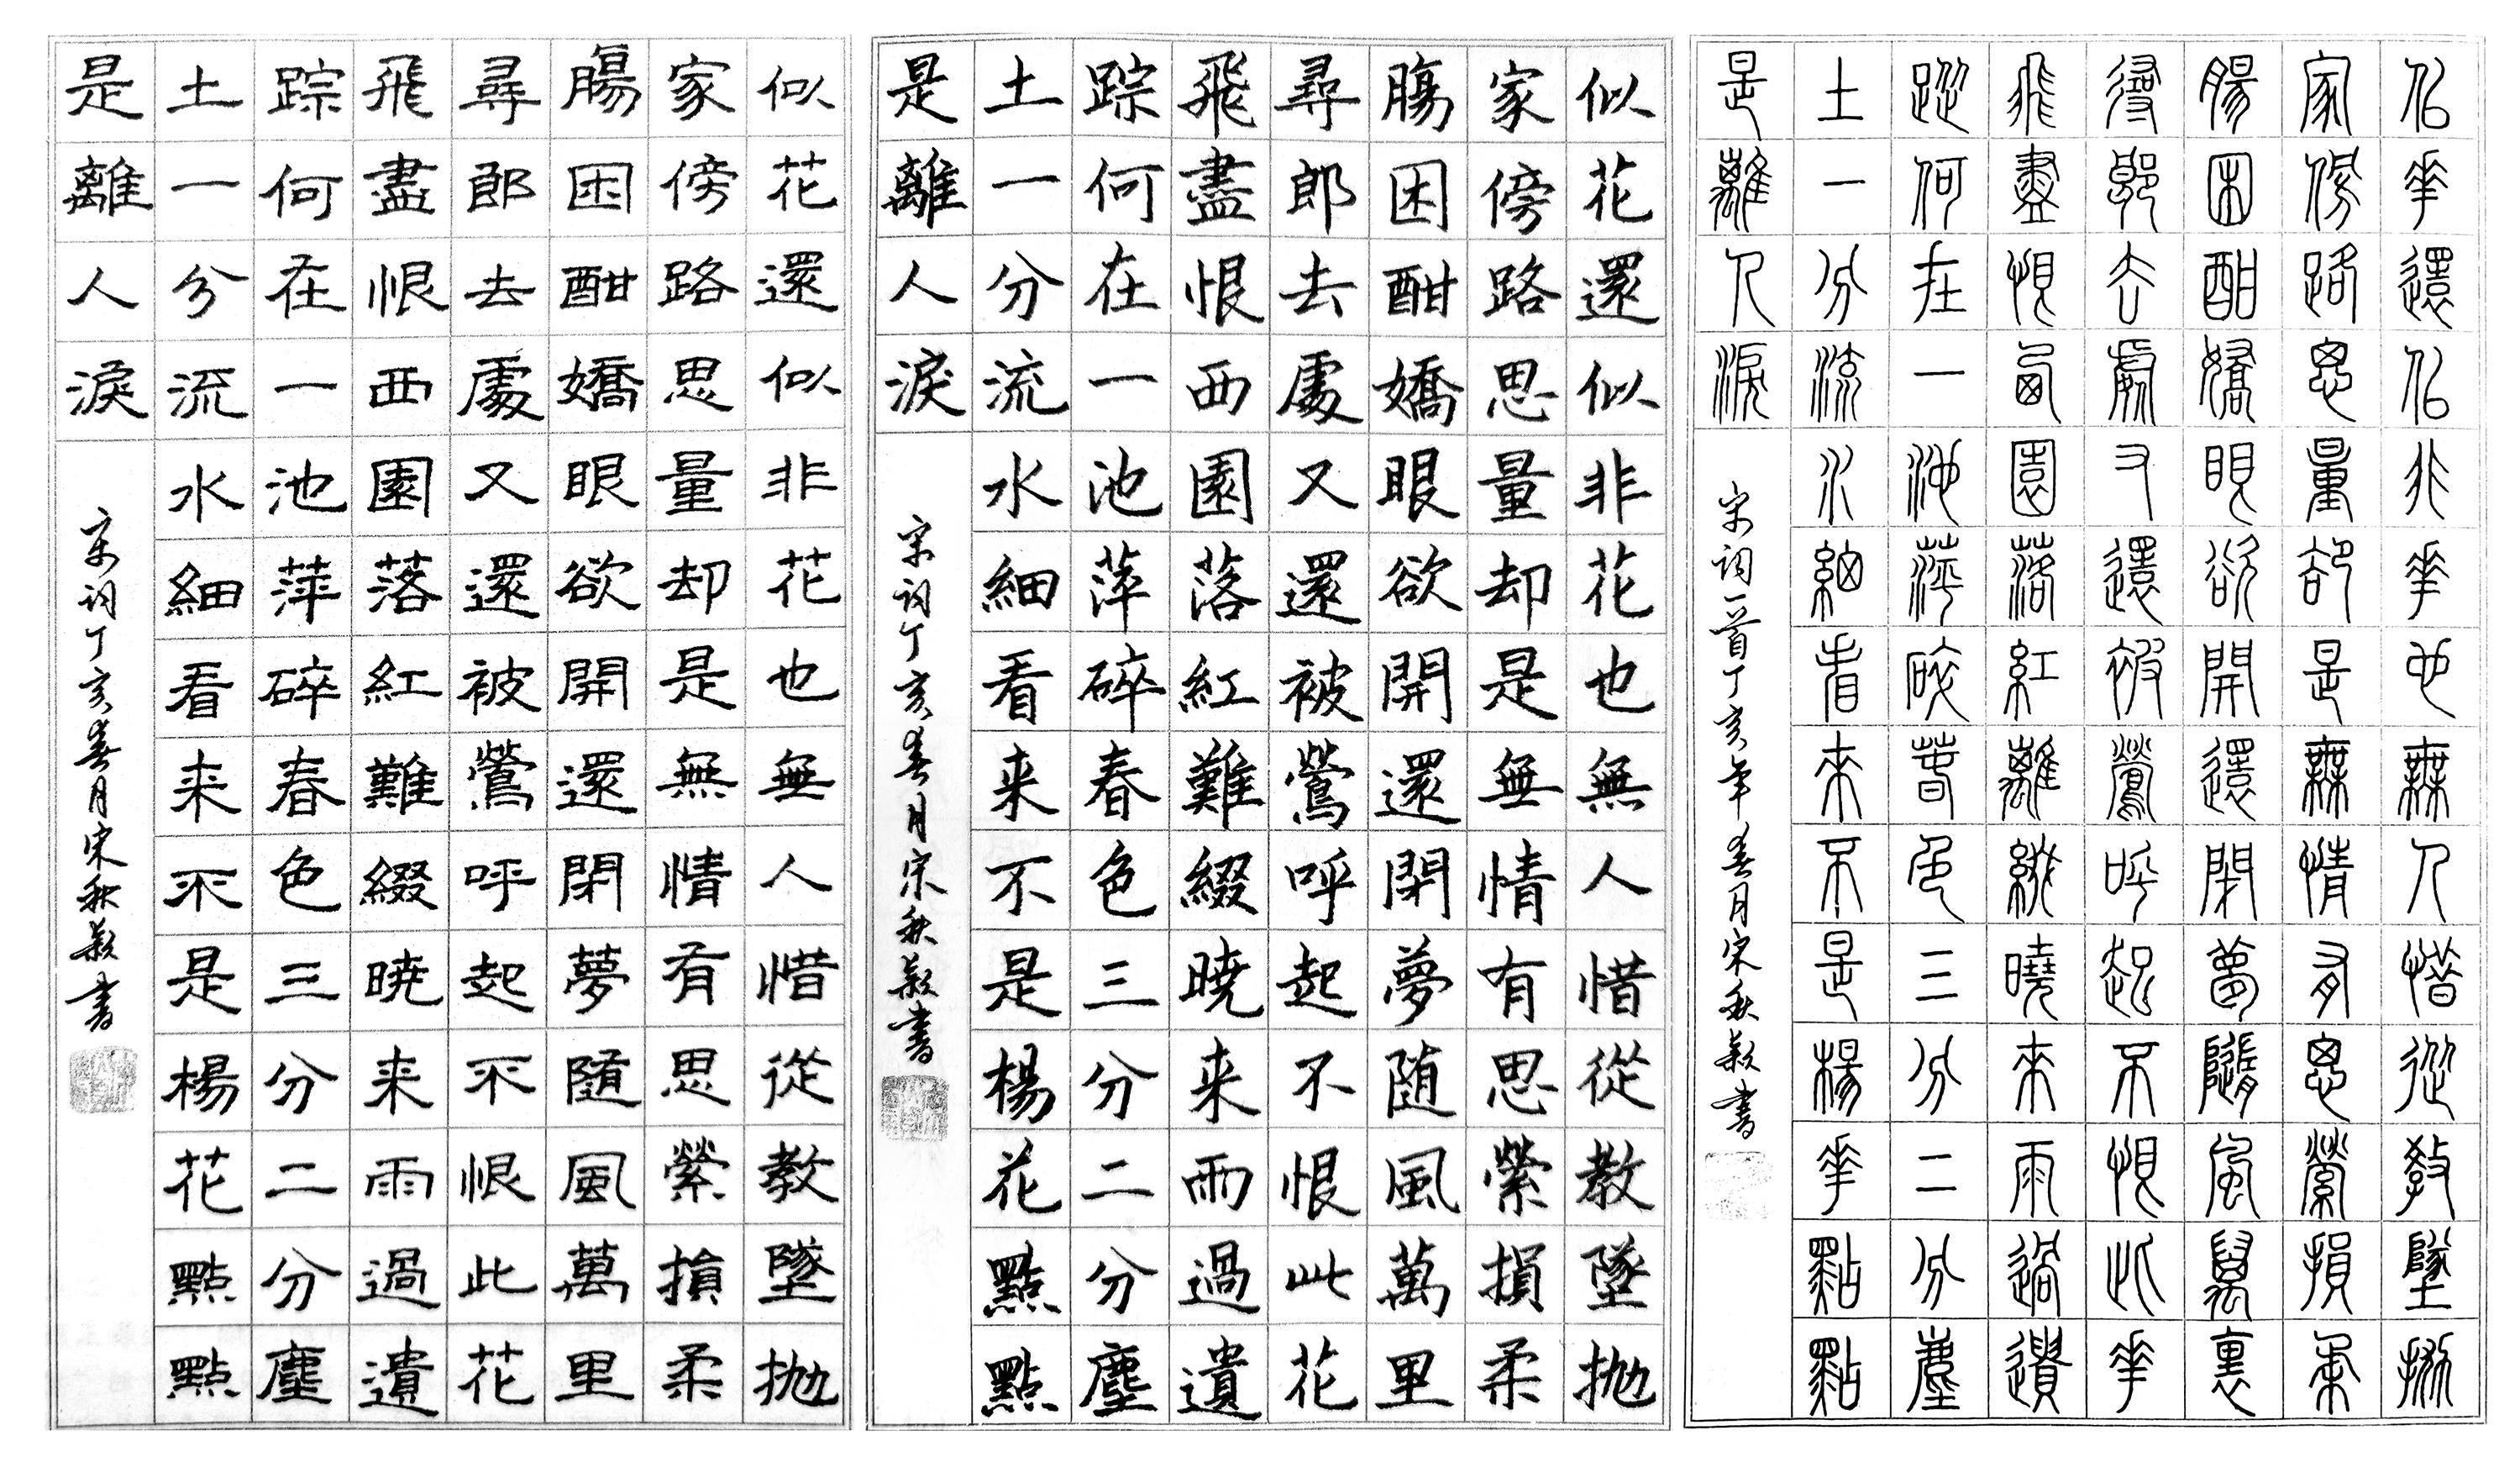 似花還似非花也無人惜從教墜抛
家傍路思量却是無情有思縈損柔
腸困酣嬌眼欲開還閉夢隨風萬裏
尋郎去處又還被鶯呼起不恨此花
飛盡恨西園落紅離綴曉來雨過遺
蹤何在一池萍碎春色三分二分塵
土一分流水細看來不是楊花點點
是離人淚
宋詞一首丁亥年春月宋秋書
似花還似非花也無人惜從教墜抛
家傍路思量却是無情有思縈損柔
腸困酣嬌眼欲開還閇夢随風萬里
尋郎去處又還被鶯呼起不恨此花
飛盡恨西園落紅難綴暁来雨過遺
踪何在一池萍碎春色三分二分塵
土一分流水細看来不是楊花點點
是離人淚
宋詞丁亥春月宋秋書
似花還似非花也無人惜從教墜抛
家傍路思量却是無情有思縈損柔
腸困酣嬌眼欲開還閇夢隨風萬里
尋郎去處又還被鶯呼起不恨此花
飛盡恨西園落紅難綴暁来雨過遺
踪何在一池萍碎春色三分二分塵
土一分流水細看来不是楊花點點
是離人淚
宋詞丁亥春月宋秋書